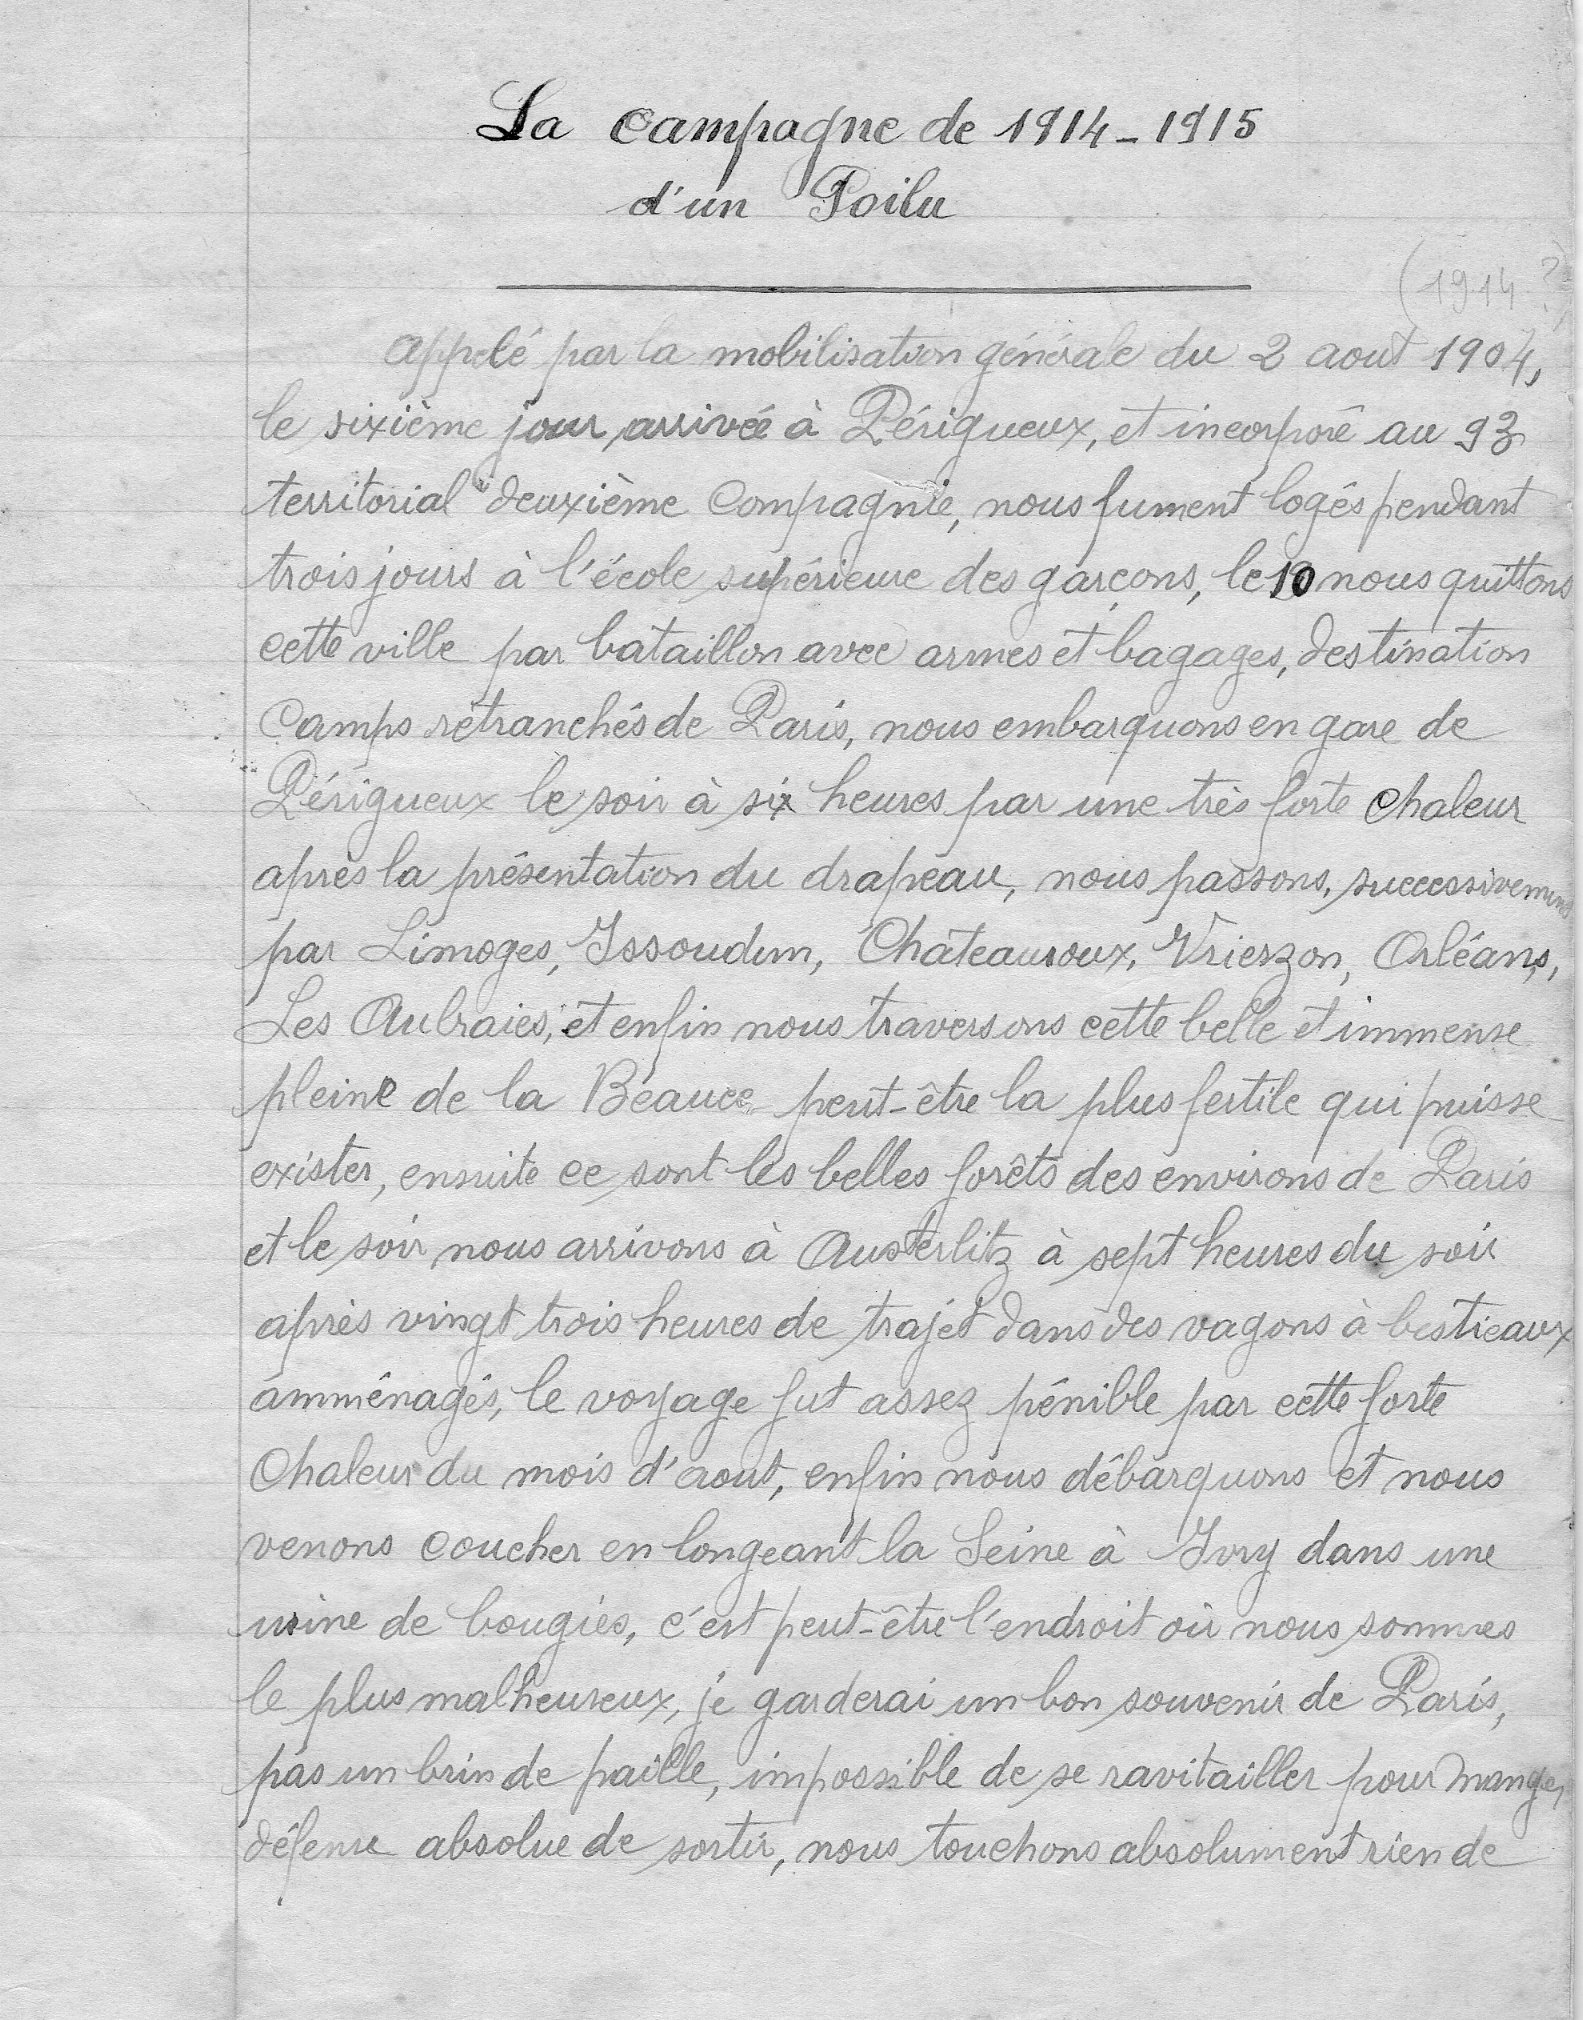 La campagne de 1914-1915
d'un Poilu
(1914 ?)
Appelé par la mobilisation générale du 2 aout 1904,
le sixième jour arrivée à Périgueux, et incorporé au 93
territorial deuxième Compagnie, nous fument logés pendant
trois jours à l'école supérieure des garçons, le 10 nous quittons
cette ville par bataillon avec armes et bagages, destination
Camps retranchés de Paris, nous embarquons en gare de
Périgueux le soir à six heures par une très forte chaleur
après la présentation du drapeau, nous passons, successivement
par Limoges, Issoudun, Châteauroux, Vrierzon, Orléans,
Les Aubraies, et enfin nous traversons cette belle et immense
pleine de la Beauce peut-être la plus fertile qui puisse
exister, ensuite ce sont les belles forêts des environs de Paris
et le soir nous arrivons à Austerlitz à sept heures du soir
après vingt trois heures de trajet dans des vagons à bestieaux
amménagés, le voyage fut assez pénible par cette forte
Chaleur du mois d'aout, enfin nous débarquons et nous
venons coucher en longeant la Seine à Ivry dans une
usine de bougies, c'est peut-être l'endroit où nous sommes
le plus malheureux, je garderai un bon souvenir de Paris,
pas un brin de paille, impossible de se ravitailler pour manger,
défense absolue de sortir, nous touchons absolument rien de